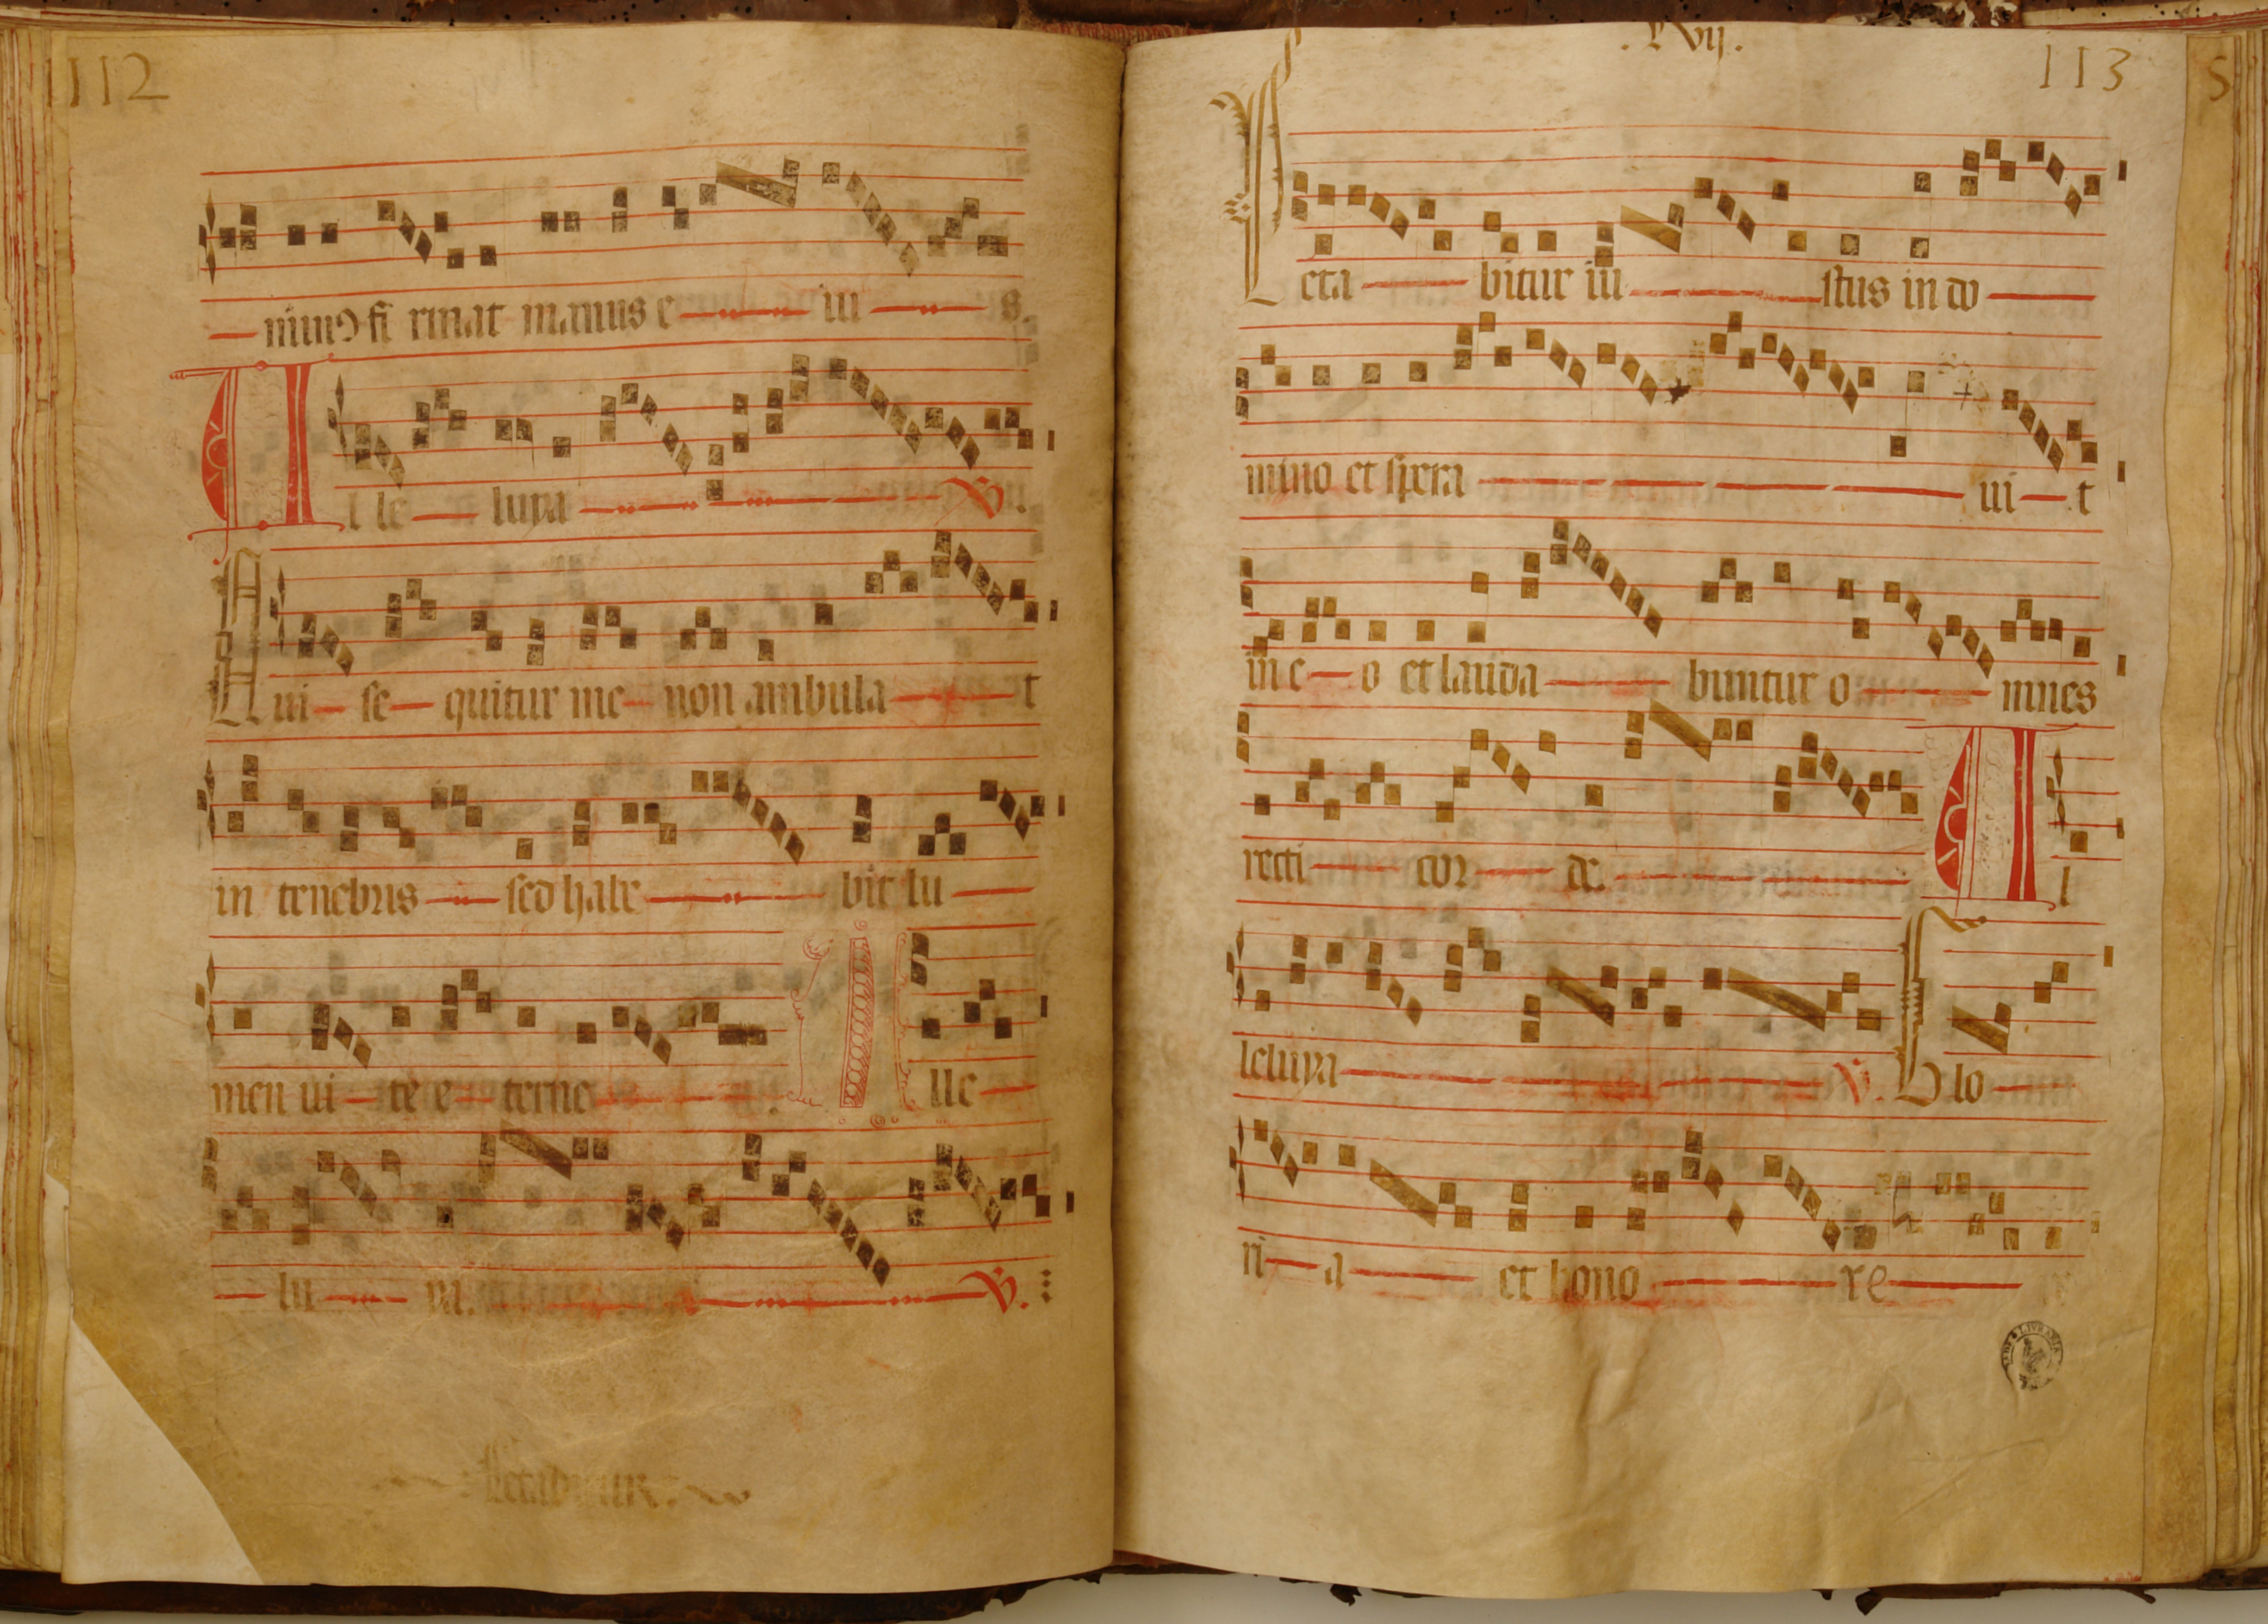 1112
nimꝯ fi rmat manus e iu s.
A l le luya ℣.
Qui se quitur me non ambula t
in tenebris sed habe bit lu
men ui te e terne. A lle
lu ya. ℣.
Letabitur.
.lvij.
113
Leta bitur iu stus in do
mino et spera ui t
in e o et lauda buntur o mnes
recti cor de. A l
leluya ℣. Glo
ri a et hono re